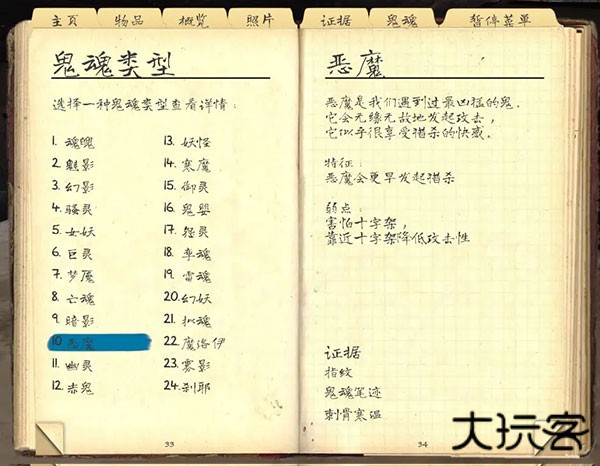 主页 物品 概览 照片 证据 鬼魂 暂停菜单
鬼魂类型
选择一种鬼魂类型查看详情:
1. 魂魄
2. 魅影
3. 幻影
4. 骚灵
5. 女妖
6. 巨灵
7. 梦魇
8. 亡魂
9. 暗影
10. 恶魔
11. 幽灵
12. 赤鬼
13. 妖怪
14. 寒魔
15. 御灵
16. 鬼婴
17. 怨灵
18. 孪魂
19. 雷魂
20. 幻妖
21. 拟魂
22. 魔洛伊
23. 雾影
24. 刹耶
33
恶魔
恶魔是我们遇到过最凶猛的鬼.
它会无缘无故地发起攻击,
它似乎很享受猎杀的快感.
特征:
恶魔会更早发起猎杀
弱点:
害怕十字架,
靠近十字架降低攻击性
证据
指纹
鬼魂笔迹
刺骨寒温
34
大玩客